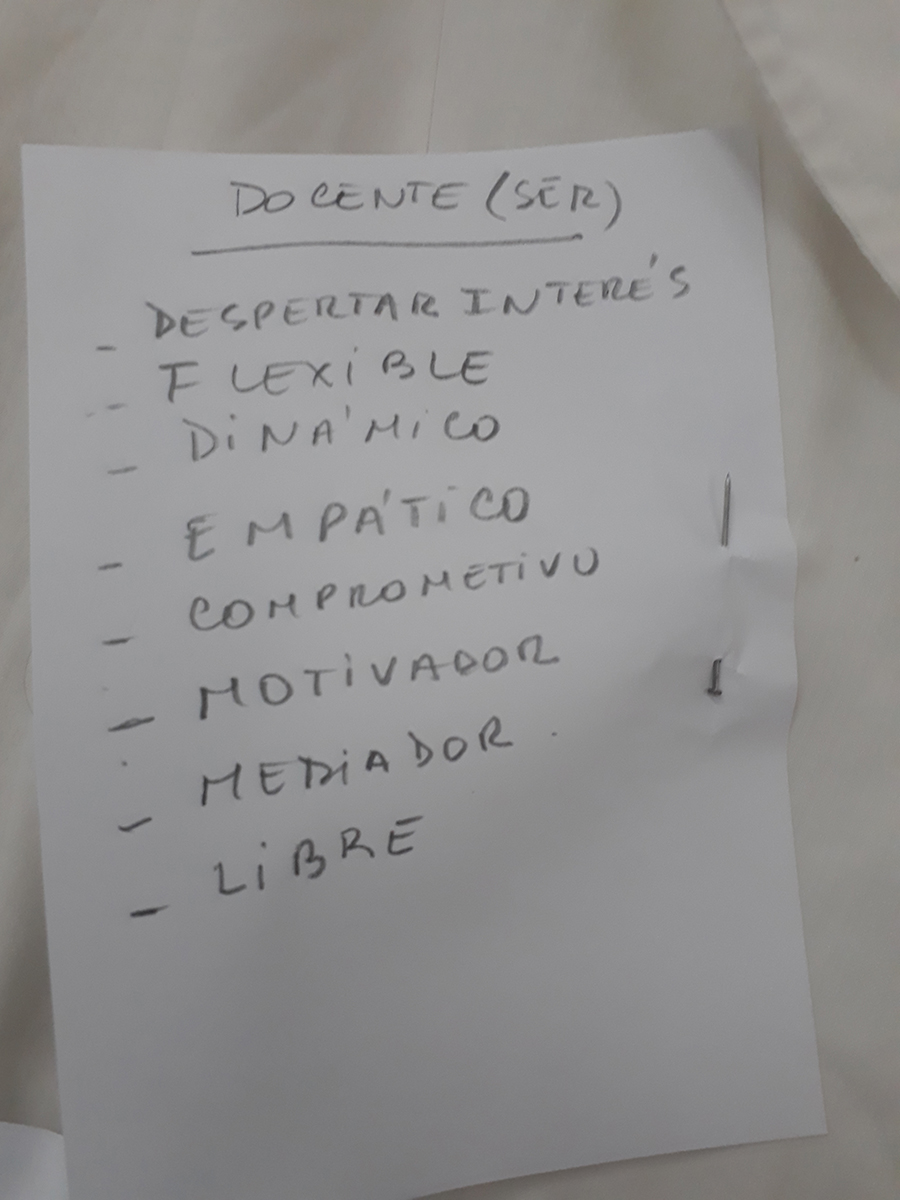 DOCENTE (SER)
- DESPERTAR INTERÉS
- FLEXIBLE
- DINÁMICO
- EMPÁTICO
- COMPROMETIVO
- MOTIVADOR
- MEDIADOR.
- LIBRE